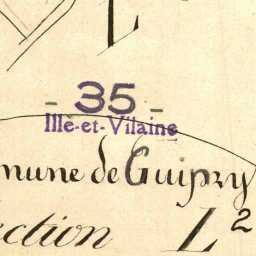 L
- 35 -
Ille-et-Vilaine
mune de Guipry
ection L²